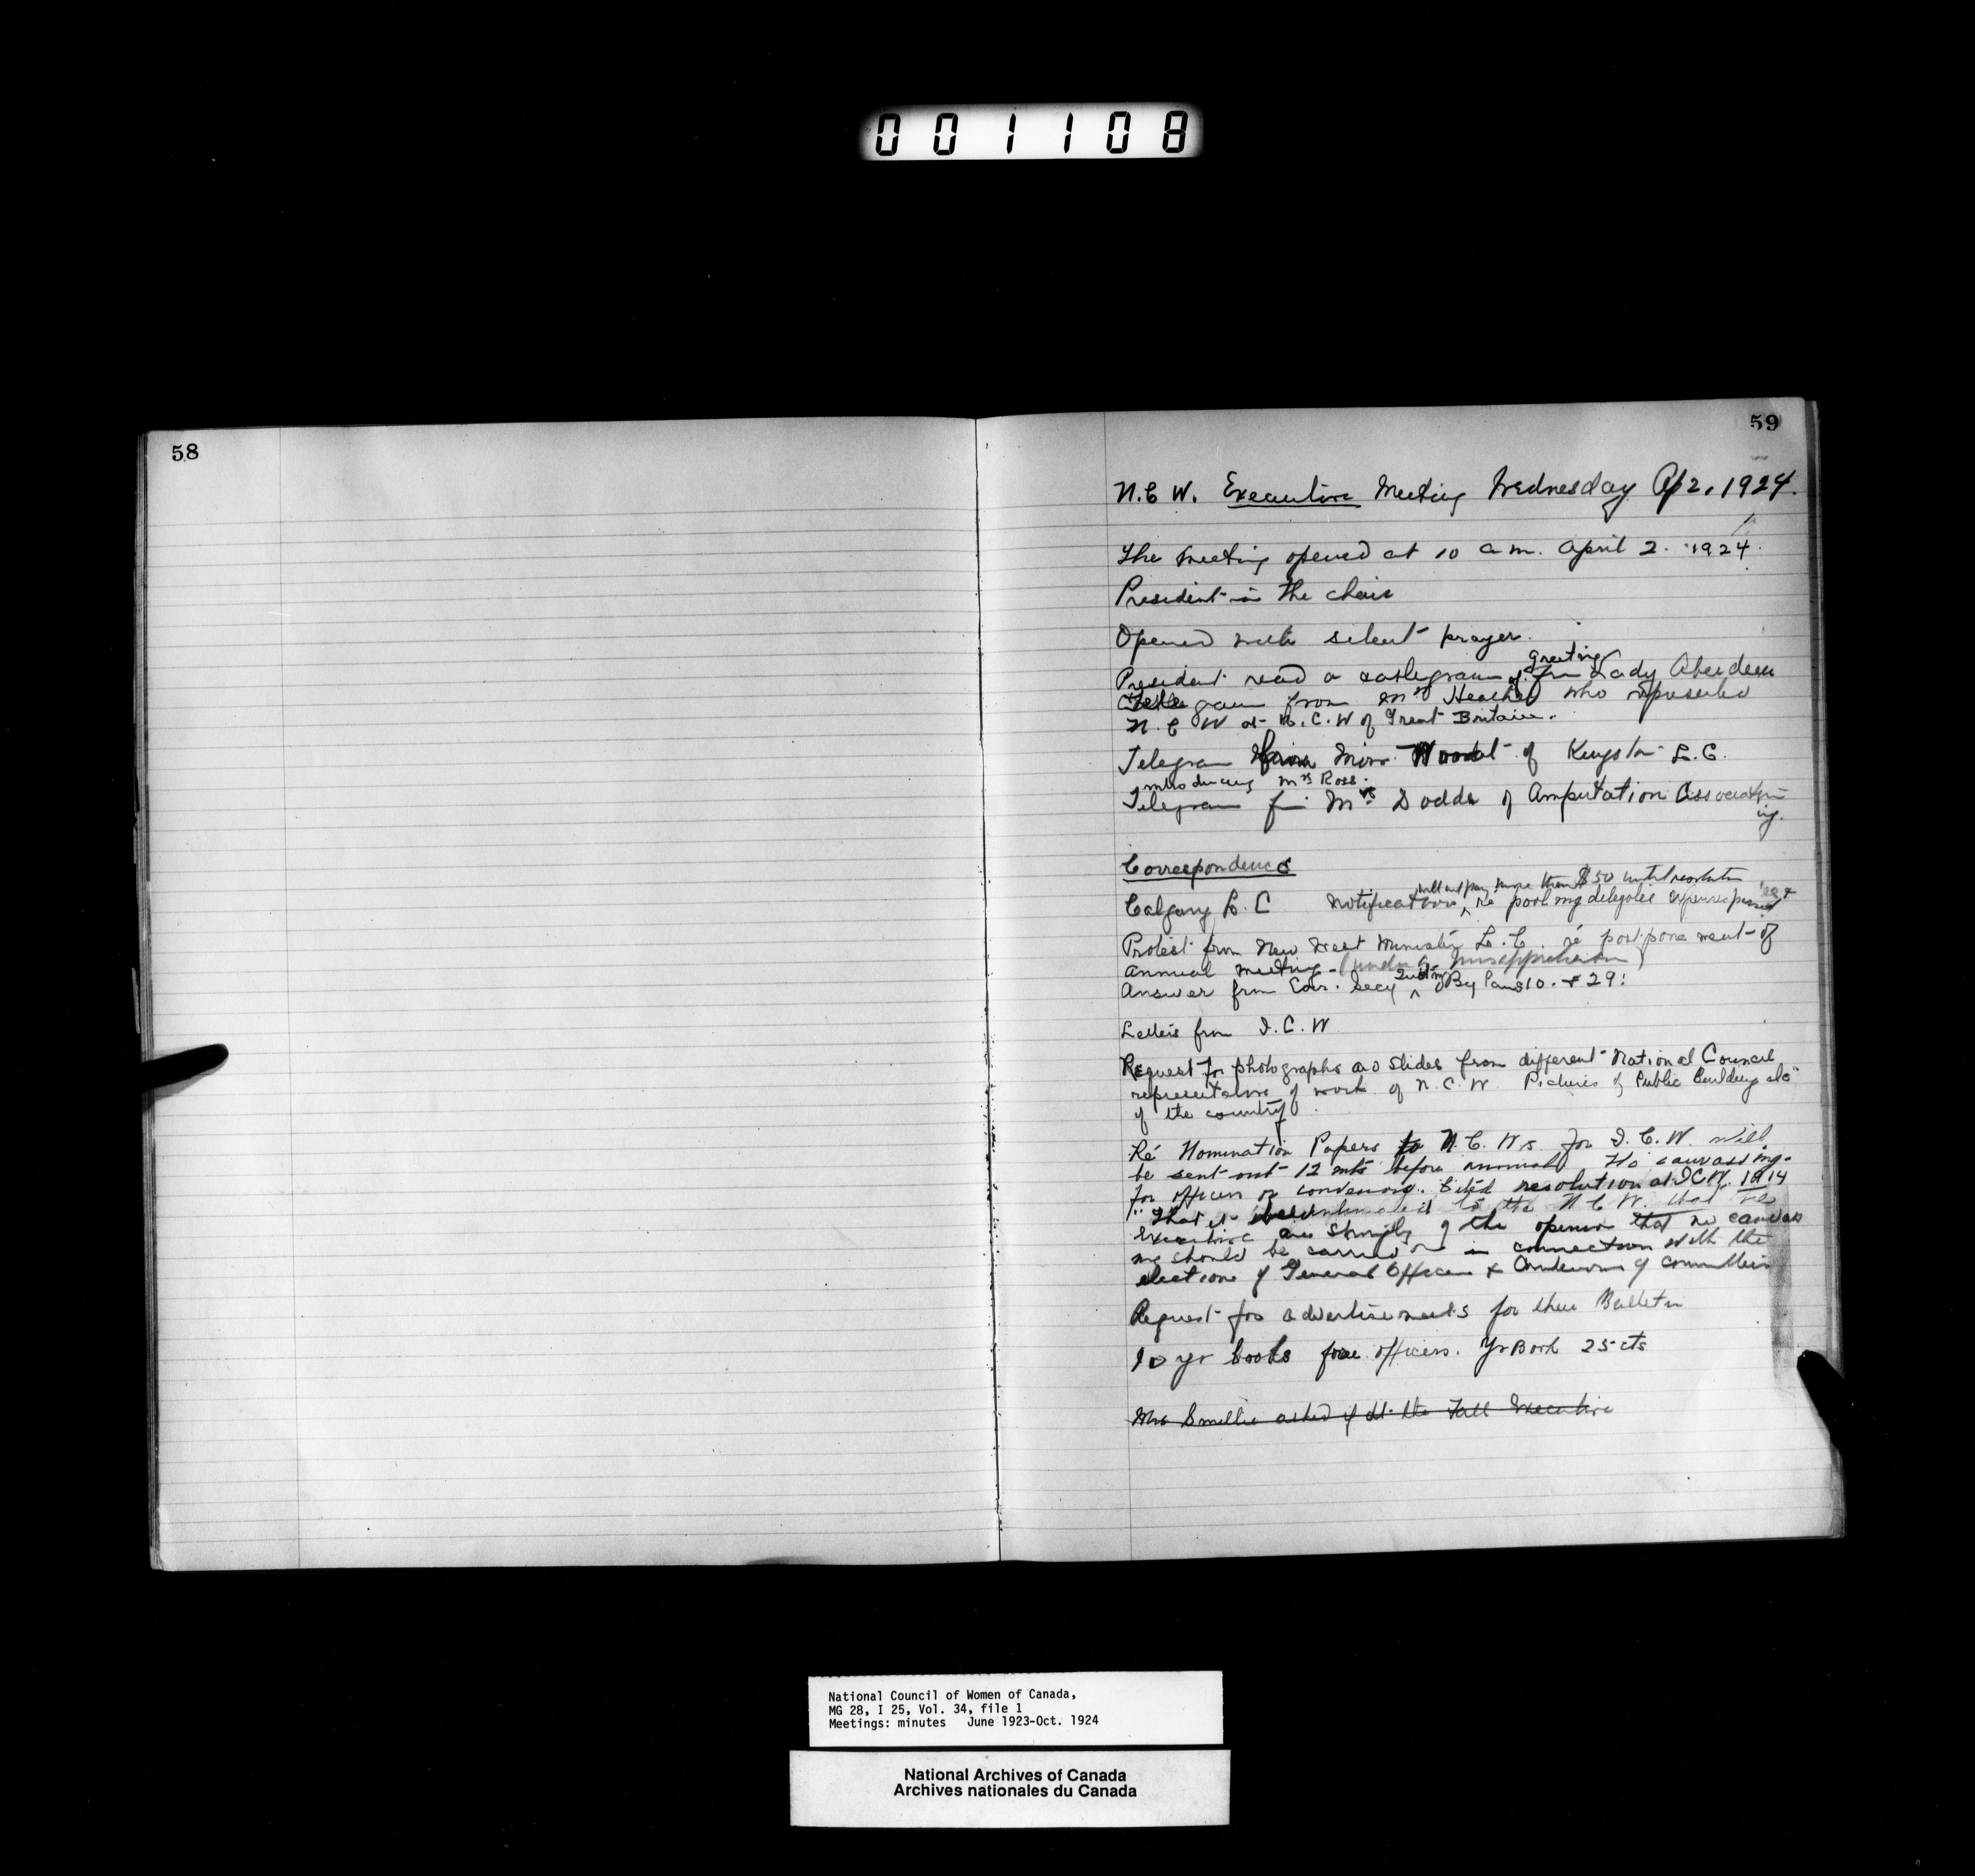 001108
58
59
N.C.W. Executive Meeting Wednesday Ap 2, 1924.
The meeting opened at 10 a.m. April 2. 1924.
President in the chair
Opened with silent prayer.
greeting
President read a cablegram of from Lady Aberdeen
gram from Mrs who represented
N.C.W at N.C.W of Great Britain.
Telegram from Miss of Kingston L.C.
introducing Mrs Ross.
Telegram fr Mrs Dodds of Amputation Association
Correspondence
will not pay more than $50 until resolution
Calgary L.C Notification re pooling delegates expenses
Protest from New West Minister L.C. ré postponement of
annual meeting (under misapprehension)
Answer from Cor. Secy By laws 10 + 29.
Letters from I.C.W
Request for photographs and slides from different National Council
representative of work of N.C.W. Pictures of Public Buildings etc
of the country
Ré Nomination Papers to N.C.Ws for I.C.W. will
be sent out 12 mts before annual No canvassing
for officers or conveners. Cited resolution at ICW. 1914
"That it be to the N C W. that the
Executive are strongly of the opinion that no canvass
ing should be carried on in connection with the
elections of General Officers & Conveners of committees
Request for advertisements for their Bulletin
10 yr books for officers. Yr Book 25 cts
Mrs Smellie asked if at the Fall Executive
National Council of Women of Canada,
MG 28, I 25, Vol. 34, file 1
Meetings: minutes June 1923-Oct. 1924
National Archives of Canada
Archives nationales du Canada